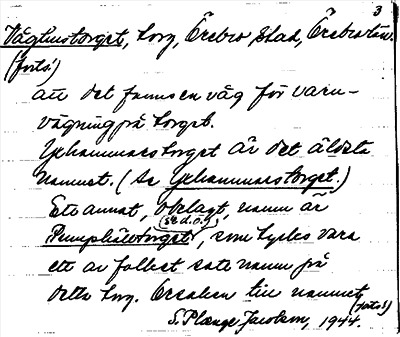 3
Våghustorget, torg, Örebro stad, Örebro län.
(forts.)
att det fanns en våg för varu-
vägning på torget.
Johannnestorget är det äldsta
namnet. (Se Johannestorget.)
Ett annat, oeklagt, namn är
(se d.o.)
Pumphåletorget, som tycks vara
ett av folket satt namn på
detta torg. Orsaken till namnet
(forts.)
S. Plænge Jacobson, 1944.